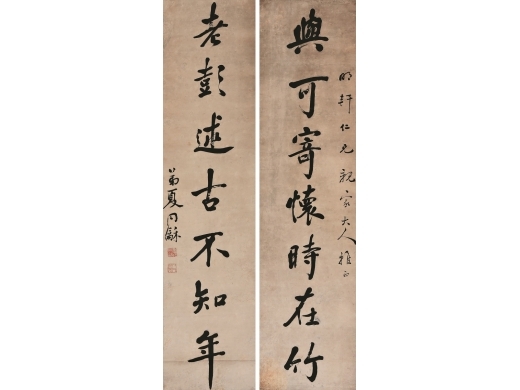 明軒仁兄親家大人雅正
與可寄懷時在竹
老彭述古不知年
弟夏同龢